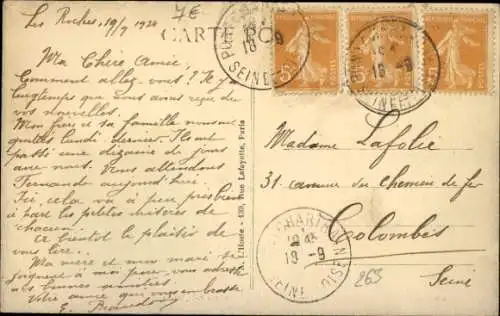 Les Roches, 19/9 1924
7€
CARTE POS
Ma Chère Amie,
Comment allez-vous? Il y a
longtemps que vous avons reçu de
vos nouvelles.
Mon frère et sa famille nous ont
quittés lundi dernier. Ils ont
passé une dizaine de jours
avec nous. Nous attendons
Fernande aujourd'hui.
Ici, cela va à peu près bien
à part les petites misères de
chacun.
A bientôt le plaisir de
vous lire.
Ma mère et mon mari se
joignent à moi pour vous adresser
les bonnes amitiés
Votre amie qui vous embrasse.
E.
Ph. L'Hoste - 139, Rue Lafayette, Paris
18 - 9
SEINE
POSTES
19 - 9
CHART
19 - 9
SEINE
OISE
Madame Lafolie
31 avenue du chemin de fer
Colombes
Seine
263